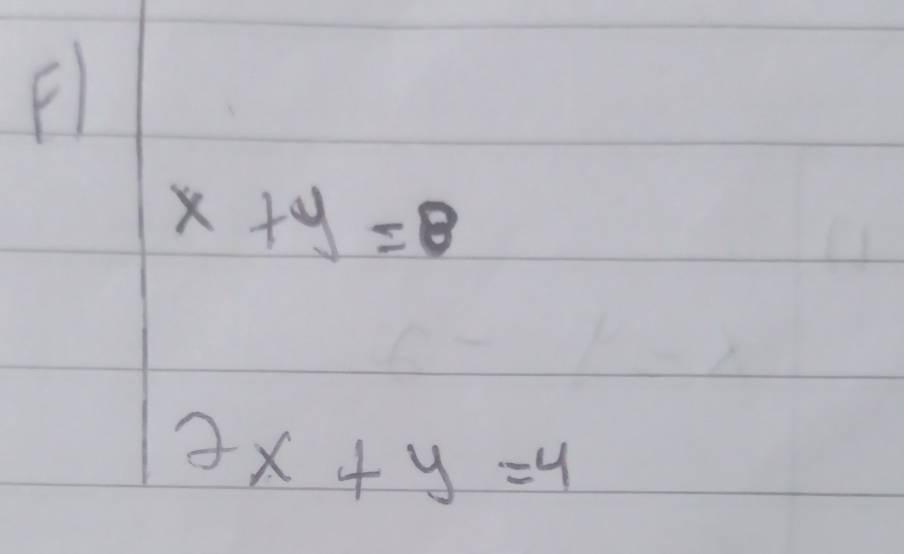 F)
x + y = 8
2x + y = 4